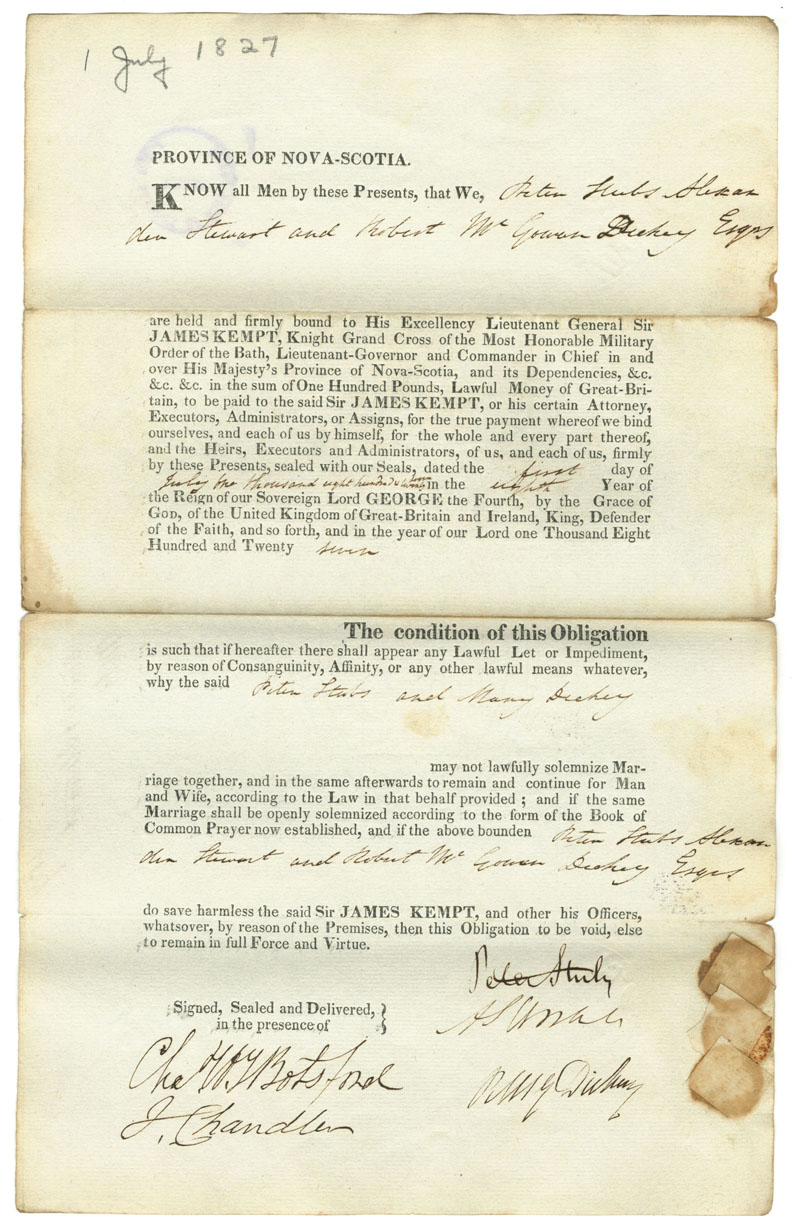 1 July 1827
PROVINCE OF NOVA-SCOTIA.
KNOW all Men by these Presents, that We, Peter Stubs Alexan
der Stewart and Robert Mc Gowan Dickey Esqrs
are held and firmly bound to His Excellency Lieutenant General Sir
JAMES KEMPT, Knight Grand Cross of the Most Honorable Military
Order of the Bath, Lieutenant-Governor and Commander in Chief in and
over His Majesty's Province of Nova-Scotia, and its Dependencies, &c.
&c. &c. in the sum of One Hundred Pounds, Lawful Money of Great-Bri-
tain, to be paid to the said Sir JAMES KEMPT, or his certain Attorney,
Executors, Administrators, or Assigns, for the true payment whereof we bind
ourselves, and each of us by himself, for the whole and every part thereof,
and the Heirs, Executors and Administrators, of us, and each of us, firmly
by these Presents, sealed with our Seals, dated the first day of
July one thousand eight hundred in the eighth Year of
the Reign of our Sovereign Lord GEORGE the Fourth, by the Grace of
GOD, of the United Kingdom of Great-Britain and Ireland, King, Defender
of the Faith, and so forth, and in the year of our Lord one Thousand Eight
Hundred and Twenty seven
The condition of this Obligation
is such that if hereafter there shall appear any Lawful Let or Impediment,
by reason of Consanguinity, Affinity, or any other lawful means whatever,
why the said Peter Stubs and Mary Dickey
may not lawfully solemnize Mar-
riage together, and in the same afterwards to remain and continue for Man
and Wife, according to the Law in that behalf provided ; and if the same
Marriage shall be openly solemnized according to the form of the Book of
Common Prayer now established, and if the above bounden Peter Stubs Alexan
der Stewart and Robert Mc Gowan Dickey Esqrs
do save harmless the said Sir JAMES KEMPT, and other his Officers,
whatsover, by reason of the Premises, then this Obligation to be void, else
to remain in full Force and Virtue.
Peter Stubs
Signed, Sealed and Delivered,
in the presence of
Chas Wy Botsford
RMcG Dickey
J. Chandler